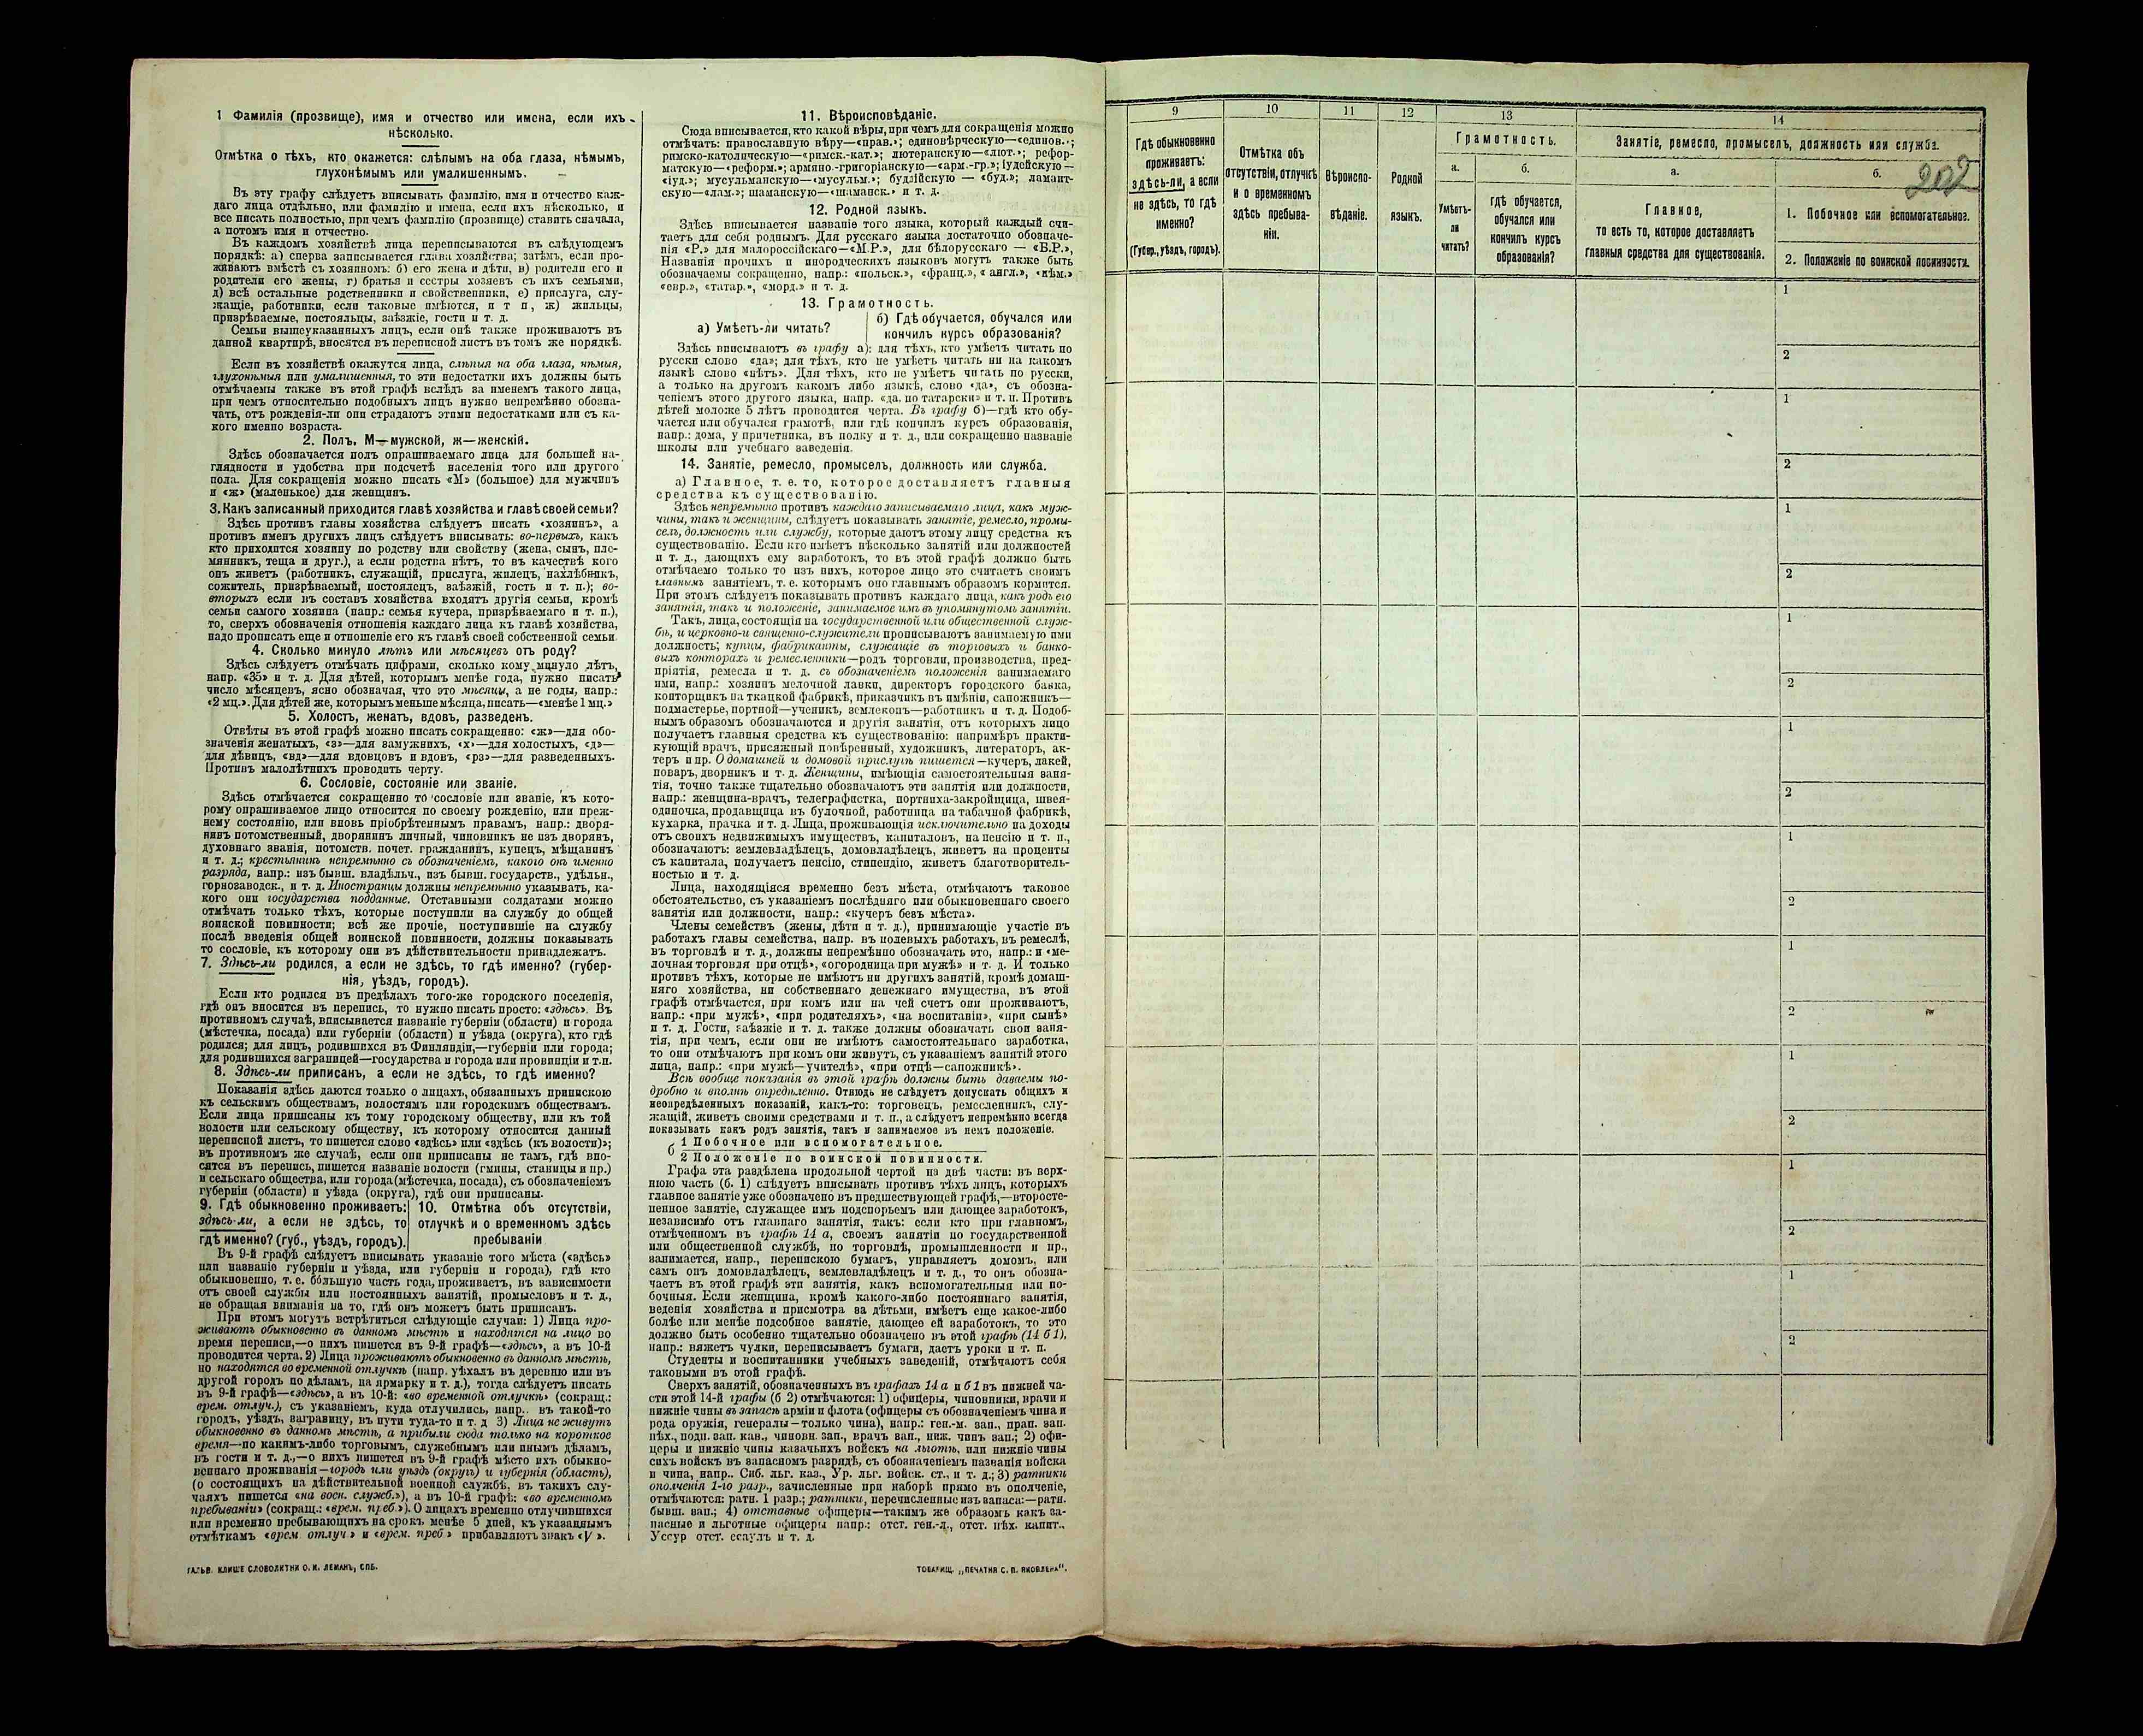 1 Фамилія (прозвище), имя и отчество или имена, если ихъ
нѣсколько.
Отмѣтка о тѣхъ, кто окажется: слѣпымъ на оба глаза, нѣмымъ,
глухонѣмымъ или умалишеннымъ.
Въ эту графу слѣдуетъ вписывать фамилію, имя и отчество каж-
даго лица отдѣльно, или фамилію и имена, если ихъ нѣсколько, и
все писать полностью, при чемъ фамилію (прозвище) ставить сначала,
а потомъ имя и отчество.
Въ каждомъ хозяйствѣ лица переписываются въ слѣдующемъ
порядкѣ: а) сперва записывается глава хозяйства; затѣмъ, если про-
живаютъ вмѣстѣ съ хозяиномъ: б) его жена и дѣти, в) родители его и
родители его жены, г) братья и сестры хозяевъ съ ихъ семьями,
д) всѣ остальные родственники и свойственники, е) прислуга, слу-
жащіе, работники, если таковые имѣются, и т п, ж) жильцы,
призрѣваемые, постояльцы, заѣзжіе, гости и т. д.
Семьи вышеуказанныхъ лицъ, если онѣ также проживаютъ въ
данной квартирѣ, вносятся въ переписной листъ въ томъ же порядкѣ.
Если въ хозяйствѣ окажутся лица, слѣпыя на оба глаза, нѣмыя,
глухонѣмыя или умалишенныя, то эти недостатки ихъ должны быть
отмѣчаемы также въ этой графѣ вслѣдъ за именемъ такого лица,
при чемъ относительно подобныхъ лицъ нужно непремѣнно обозна-
чать, отъ рожденія-ли они страдаютъ этими недостатками или съ ка-
кого именно возраста.
2. Полъ. М—мужской, ж—женскій.
Здѣсь обозначается полъ опрашиваемаго лица для большей на-
глядности и удобства при подсчетѣ населенія того или другого
пола. Для сокращенія можно писать «М» (большое) для мужчинъ
и «ж» (маленькое) для женщинъ.
3. Какъ записанный приходится главѣ хозяйства и главѣ своей семьи?
Здѣсь противъ главы хозяйства слѣдуетъ писать «хозяинъ», а
противъ именъ другихъ лицъ слѣдуетъ вписывать: во-первыхъ, какъ
кто приходится хозяину по родству или свойству (жена, сынъ, пле-
мянникъ, теща и друг.), а если родства нѣтъ, то въ качествѣ кого
онъ живетъ (работникъ, служащій, прислуга, жилецъ, нахлѣбникъ,
сожитель, призрѣваемый, постоялецъ, заѣзжій, гость и т. п.); во-
вторыхъ если въ составъ хозяйства входятъ другія семьи, кромѣ
семьи самого хозяина (напр.: семья кучера, призрѣваемаго и т. п.),
то, сверхъ обозначенія отношенія каждаго лица къ главѣ хозяйства,
надо прописать еще и отношеніе его къ главѣ своей собственной семьи.
4. Сколько минуло лѣтъ или мѣсяцевъ отъ роду?
Здѣсь слѣдуетъ отмѣчать цифрами, сколько кому минуло лѣтъ,
напр. «35» и т. д. Для дѣтей, которымъ менѣе года, нужно писать
число мѣсяцевъ, ясно обозначая, что это мѣсяцы, а не годы, напр.:
«2 мц.». Для дѣтей же, которымъ меньше мѣсяца, писать—«менѣе 1 мц.»
5. Холостъ, женатъ, вдовъ, разведенъ.
Отвѣты въ этой графѣ можно писать сокращенно: «ж»—для обо-
значенія женатыхъ, «з»—для замужнихъ, «х»—для холостыхъ, «д»—
для дѣвицъ, «вд»—для вдовцовъ и вдовъ, «рз»—для разведенныхъ.
Противъ малолѣтнихъ проводить черту.
6. Сословіе, состояніе или званіе.
Здѣсь отмѣчается сокращенно то сословіе или званіе, къ кото-
рому опрашиваемое лицо относится по своему рожденію, или преж-
нему состоянію, или вновь пріобрѣтеннымъ правамъ, напр.: дворя-
нинъ потомственный, дворянинъ личный, чиновникъ не изъ дворянъ,
духовнаго званія, потомств. почет. гражданинъ, купецъ, мѣщанинъ
и т. д.; крестьянинъ непремѣнно съ обозначеніемъ, какого онъ именно
разряда, напр.: изъ бывш. владѣльч., изъ бывш. государств., удѣльн.,
горнозаводск., и т. д. Иностранцы должны непремѣнно указывать, ка-
кого они государства подданные. Отставными солдатами можно
отмѣчать только тѣхъ, которые поступили на службу до общей
воинской повинности; всѣ же прочіе, поступившіе на службу
послѣ введенія общей воинской повинности, должны показывать
то сословіе, къ которому они въ дѣйствительности принадлежатъ.
7. Здѣсь-ли родился, а если не здѣсь, то гдѣ именно? (губер-
нія, уѣздъ, городъ).
Если кто родился въ предѣлахъ того-же городского поселенія,
гдѣ онъ вносится въ перепись, то нужно писать просто: «здѣсь». Въ
противномъ случаѣ, вписывается названіе губерніи (области) и города
(мѣстечка, посада) или губерніи (области) и уѣзда (округа), кто гдѣ
родился; для лицъ, родившихся въ Финляндіи,—губерніи или города;
для родившихся заграницей—государства и города или провинціи и т.п.
8. Здѣсь-ли приписанъ, а если не здѣсь, то гдѣ именно?
Показанія здѣсь даются только о лицахъ, обязанныхъ припискою
къ сельскимъ обществамъ, волостямъ или городскимъ обществамъ.
Если лица приписаны къ тому городскому обществу, или къ той
волости или сельскому обществу, къ которому относится данный
переписной листъ, то пишется слово «здѣсь» или «здѣсь (къ волости)»;
въ противномъ же случаѣ, если они приписаны не тамъ, гдѣ вно-
сятся въ перепись, пишется названіе волости (гмины, станицы и пр.)
и сельскаго общества, или города (мѣстечка, посада), съ обозначеніемъ
губерніи (области) и уѣзда (округа), гдѣ они приписаны.
9. Гдѣ обыкновенно проживаетъ:
здѣсь-ли, а если не здѣсь, то
гдѣ именно? (губ., уѣздъ, городъ).
10. Отмѣтка объ отсутствіи,
отлучкѣ и о временномъ здѣсь
пребываніи
Въ 9-й графѣ слѣдуетъ вписывать указаніе того мѣста («здѣсь»
или названіе губерніи и уѣзда, или губерніи и города), гдѣ кто
обыкновенно, т. е. бо́льшую часть года, проживаетъ, въ зависимости
отъ своей службы или постоянныхъ занятій, промысловъ и т. д.,
не обращая вниманія на то, гдѣ онъ можетъ быть приписанъ.
При этомъ могутъ встрѣтиться слѣдующіе случаи: 1) Лица про-
живаютъ обыкновенно въ данномъ мѣстѣ и находятся на лицо во
время переписи,—о нихъ пишется въ 9-й графѣ—«здѣсь», а въ 10-й
проводится черта. 2) Лица проживаютъ обыкновенно въ данномъ мѣстѣ,
но находятся во временной отлучкѣ (напр. уѣхалъ въ деревню или въ
другой городъ по дѣламъ, на ярмарку и т. д.), тогда слѣдуетъ писать
въ 9-й графѣ—«здѣсь», а въ 10-й: «во временной отлучкѣ» (сокращ.:
врем. отлуч.), съ указаніемъ, куда отлучились, напр.. въ такой-то
городъ, уѣздъ, заграницу, въ пути туда-то и т. д 3) Лица не живутъ
обыкновенно въ данномъ мѣстѣ, а прибыли сюда только на короткое
время—по какимъ-либо торговымъ, служебнымъ или инымъ дѣламъ,
въ гости и т. д.,—о нихъ пишется въ 9-й графѣ мѣсто ихъ обыкно-
веннаго проживанія—городъ или уѣздъ (округъ) и губернія (область),
(о состоящихъ на дѣйствительной военной службѣ, въ такихъ слу-
чаяхъ пишется «на воен. служб.»), а въ 10-й графѣ: «во временномъ
пребываніи» (сокращ.: «врем. преб.»). О лицахъ временно отлучившихся
или временно пребывающихъ на срокъ менѣе 5 дней, къ указаннымъ
отмѣткамъ «врем. отлуч.» и «врем. преб.» прибавляютъ знакъ «V».
ГАЛЬВ. КЛИШЕ СЛОВОЛИТНИ О. И. ЛЕМАНЪ, СПБ.
11. Вѣроисповѣданіе.
Сюда вписывается, кто какой вѣры, при чемъ для сокращенія можно
отмѣчать: православную вѣру—«прав.»; единовѣрческую—«единов.»;
римско-католическую—«римск.-кат.»; лютеранскую—«лют.»; рефор-
матскую—«реформ.»; армяно.-григоріанскую—«арм.-гр.»; іудейскую—
«іуд.»; мусульманскую—«мусульм.»; буддійскую — «буд.»; ламаит-
скую—«лам.»; шаманскую—«шаманск.» и т. д.
12. Родной языкъ.
Здѣсь вписывается названіе того языка, который каждый счи-
таетъ для себя роднымъ. Для русскаго языка достаточно обозначе-
нія «Р.» для малороссійскаго—«М.Р.», для бѣлорусскаго — «Б.Р.»,
Названія прочихъ и инородческихъ языковъ могутъ также быть
обозначаемы сокращенно, напр.: «польск.», «франц.», «англ.», «нѣм.»
«евр.», «татар.», «морд.» и т. д.
13. Грамотность.
а) Умѣетъ-ли читать?
б) Гдѣ обучается, обучался или
кончилъ курсъ образованія?
Здѣсь вписываютъ въ графу а): для тѣхъ, кто умѣетъ читать по
русски слово «да»; для тѣхъ, кто не умѣетъ читать ни на какомъ
языкѣ слово «нѣтъ». Для тѣхъ, кто не умѣетъ читать по русски,
а только на другомъ какомъ либо языкѣ, слово «да», съ обозна-
ченіемъ этого другого языка, напр. «да, по татарски» и т. п. Противъ
дѣтей моложе 5 лѣтъ проводится черта. Въ графу б)—гдѣ кто обу-
чается или обучался грамотѣ, или гдѣ кончилъ курсъ образованія,
напр.: дома, у причетника, въ полку и т. д., или сокращенно названіе
школы или учебнаго заведенія.
14. Занятіе, ремесло, промыселъ, должность или служба.
а) Главное, т. е. то, которое доставляетъ главныя
средства къ существованію.
Здѣсь непремѣнно противъ каждаго записываемаго лица, какъ муж-
чины, такъ и женщины, слѣдуетъ показывать занятіе, ремесло, промы-
селъ, должность или службу, которые даютъ этому лицу средства къ
существованію. Если кто имѣетъ нѣсколько занятій или должностей
и т. д., дающихъ ему заработокъ, то въ этой графѣ должно быть
отмѣчаемо только то изъ нихъ, которое лицо это считаетъ своимъ
главнымъ занятіемъ, т. е. которымъ оно главнымъ образомъ кормится.
При этомъ слѣдуетъ показывать противъ каждаго лица, какъ родъ его
занятія, такъ и положеніе, занимаемое имъ въ упомянутомъ занятіи.
Такъ, лица, состоящія на государственной или общественной служ-
бѣ, и церковно-и священно-служители прописываютъ занимаемую ими
должность; купцы, фабриканты, служащіе въ торговыхъ и банко-
выхъ конторахъ и ремесленники—родъ торговли, производства, пред-
пріятія, ремесла и т. д. съ обозначеніемъ положенія занимаемаго
ими, напр.: хозяинъ мелочной лавки, директоръ городского банка,
конторщикъ на ткацкой фабрикѣ, приказчикъ въ имѣніи, сапожникъ—
подмастерье, портной—ученикъ, землекопъ—работникъ и т. д. Подоб-
нымъ образомъ обозначаются и другія занятія, отъ которыхъ лицо
получаетъ главныя средства къ существованію: напримѣръ практи-
кующій врачъ, присяжный повѣренный, художникъ, литераторъ, ак-
теръ и пр. О домашней и домовой прислугѣ пишется—кучеръ, лакей,
поваръ, дворникъ и т. д. Женщины, имѣющія самостоятельныя заня-
тія, точно также тщательно обозначаютъ эти занятія или должности,
напр.: женщина-врачъ, телеграфистка, портниха-закройщица, швея-
одиночка, продавщица въ булочной, работница на табачной фабрикѣ,
кухарка, прачка и т. д. Лица, проживающія исключительно на доходы
отъ своихъ недвижимыхъ имуществъ, капиталовъ, на пенсію и т. п.,
обозначаютъ: землевладѣлецъ, домовладѣлецъ, живетъ на проценты
съ капитала, получаетъ пенсію, стипендію, живетъ благотворитель-
ностью и т. д.
Лица, находящіяся временно безъ мѣста, отмѣчаютъ таковое
обстоятельство, съ указаніемъ послѣдняго или обыкновеннаго своего
занятія или должности, напр.: «кучеръ безъ мѣста».
Члены семействъ (жены, дѣти и т. д.), принимающіе участіе въ
работахъ главы семейства, напр. въ полевыхъ работахъ, въ ремеслѣ,
въ торговлѣ и т. д., должны непремѣнно обозначать это, напр.: и «ме-
лочная торговля при отцѣ», «огородница при мужѣ» и т. д. И только
противъ тѣхъ, которые не имѣютъ ни другихъ занятій, кромѣ домаш-
няго хозяйства, ни собственнаго денежнаго имущества, въ этой
графѣ отмѣчается, при комъ или на чей счетъ они проживаютъ,
напр.: «при мужѣ», «при родителяхъ», «на воспитаніи», «при сынѣ»
и т. д. Гости, заѣзжіе и т. д. также должны обозначать свои заня-
тія, при чемъ, если они не имѣютъ самостоятельнаго заработка,
то они отмѣчаютъ при комъ они живутъ, съ указаніемъ занятій этого
лица, напр.: «при мужѣ—учителѣ», «при отцѣ—сапожникѣ».
Всѣ вообще показанія въ этой графѣ должны быть даваемы по-
дробно и вполнѣ опредѣленно. Отнюдь не слѣдуетъ допускать общихъ и
неопредѣленныхъ показаній, какъ-то: торговецъ, ремесленникъ, слу-
жащій, живетъ своими средствами и т. п., а слѣдуетъ непремѣнно всегда
показывать какъ родъ занятія, такъ и занимаемое въ немъ положеніе.
б 1 Побочное или вспомогательное.
2 Положеніе по воинской повинности.
Графа эта раздѣлена продольной чертой на двѣ части: въ верх-
нюю часть (б. 1) слѣдуетъ вписывать противъ тѣхъ лицъ, которыхъ
главное занятіе уже обозначено въ предшествующей графѣ,—второсте-
пенное занятіе, служащее имъ подспорьемъ или дающее заработокъ,
независимо отъ главнаго занятія, такъ: если кто при главномъ,
отмѣченномъ въ графѣ 14 а, своемъ занятіи по государственной
или общественной службѣ, по торговлѣ, промышленности и пр.,
занимается, напр., перепискою бумагъ, управляетъ домомъ, или
самъ онъ домовладѣлецъ, землевладѣлецъ и т. д., то онъ обозна-
чаетъ въ этой графѣ эти занятія, какъ вспомогательныя или по-
бочныя. Если женщина, кромѣ какого-либо постояннаго занятія,
веденія хозяйства и присмотра за дѣтьми, имѣетъ еще какое-либо
болѣе или менѣе подсобное занятіе, дающее ей заработокъ, то это
должно быть особенно тщательно обозначено въ этой графѣ (14 б 1),
напр.: вяжетъ чулки, переписываетъ бумаги, даетъ уроки и т. п.
Студенты и воспитанники учебныхъ заведеній, отмѣчаютъ себя
таковыми въ этой графѣ.
Сверхъ занятій, обозначенныхъ въ графахъ 14 а и б 1 въ нижней ча-
сти этой 14-й графы (б 2) отмѣчаются: 1) офицеры, чиновники, врачи и
нижніе чины въ запасѣ арміи и флота (офицеры съ обозначеніемъ чина и
рода оружія, генералы—только чина), напр.: ген.-м. зап., прап. зап.
пѣх., подп. зап. кав., чиновн. зап., врачъ зап., ниж. чинъ зап.; 2) офи-
церы и нижніе чины казачьихъ войскъ на льготѣ, или нижніе чины
сихъ войскъ въ запасномъ разрядѣ, съ обозначеніемъ названія войска
и чина, напр.. Сиб. льг. каз., Ур. льг. войск. ст., и т. д.; 3) ратники
ополченія 1-го разр., зачисленные при наборѣ прямо въ ополченіе,
отмѣчаются: ратн. 1 разр.; ратники, перечисленные изъ запаса:—ратн.
бывш. зап.; 4) отставные офицеры—такимъ же образомъ какъ за-
пасные и льготные офицеры напр.: отст. ген.-л., отст. пѣх. капит.,
Уссур отст. есаулъ и т. д.
ТОВАРИЩ. „ПЕЧАТНЯ С. П. ЯКОВЛЕВА“.
9
Гдѣ обыкновенно
проживаетъ:
здѣсь-ли, а если
не здѣсь, то гдѣ
именно?
(Губер., уѣздъ, городъ).
10
Отмѣтка объ
отсутствіи, отлучкѣ
и о временномъ
здѣсь пребыва-
ніи.
11
Вѣроиспо-
вѣданіе.
12
Родной
языкъ.
13
Грамотность.
а.
Умѣетъ-
ли
читать?
б.
гдѣ обучается,
обучался или
кончилъ курсъ
образованія?
14
Занятіе, ремесло, промыселъ, должность или служба.
202
а.
Главное,
то есть то, которое доставляетъ
главныя средства для существованія.
б.
1. Побочное или вспомогательное.
2. Положеніе по воинской повинности.
1
2
1
2
1
2
1
2
1
2
1
2
1
2
1
2
1
2
1
2